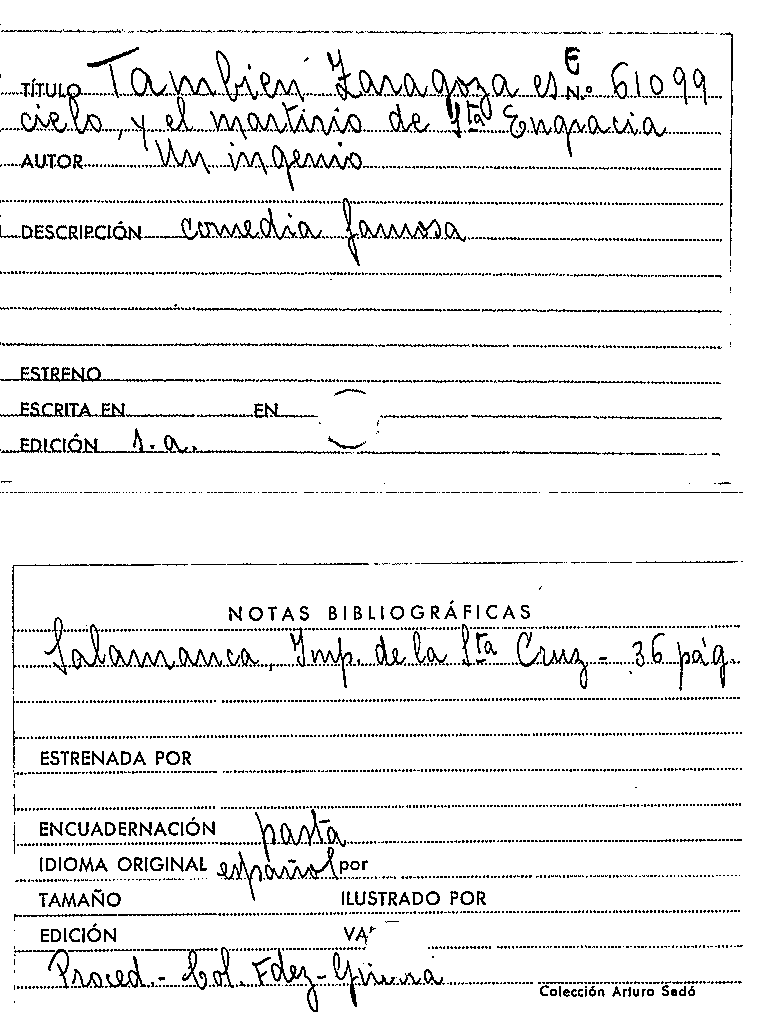 E
TÍTULO También Zaragoza es N.º 61099
cielo, y el martirio de Sta Engracia
AUTOR Un ingenio
DESCRIPCIÓN comedia famosa
ESTRENO
ESCRITA EN EN
EDICIÓN s.a.
NOTAS BIBLIOGRÁFICAS
Salamanca, Imp. de la Sta Cruz - 36 pág.
ESTRENADA POR
ENCUADERNACIÓN pasta
IDIOMA ORIGINAL español por
TAMAÑO ILUSTRADO POR
EDICIÓN
Proced. - Col. Fdez-
Colección Arturo Sedó